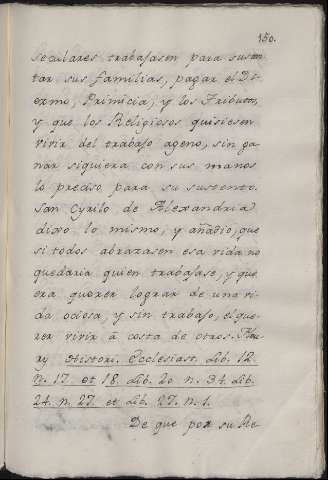 150.
seculares trabajasen para susten
tar sus familias, pagar el Di-
ezmo, Primicia, y los Tributos,
y que los Religiosos quisiesen
vivir del trabajo ageno, sin ga
nar siquiera con sus manos
lo preciso para su sustento.
San Cyrilo de Alexandria
dixo lo mismo, y añadio, que
si todos abrazasen esa vida no
quedaria quien trabajase, y que
era querer lograr de una vi-
da ociosa, y sin trabajo, el que-
rer vivir à costa de otros. Fleu
ry Histori. Ecclesiast. lib. 12.
n. 17. et 18. lib. 20 n. 34. lib.
24. n. 27. et lib. 27. n. 1.
De que por su Re